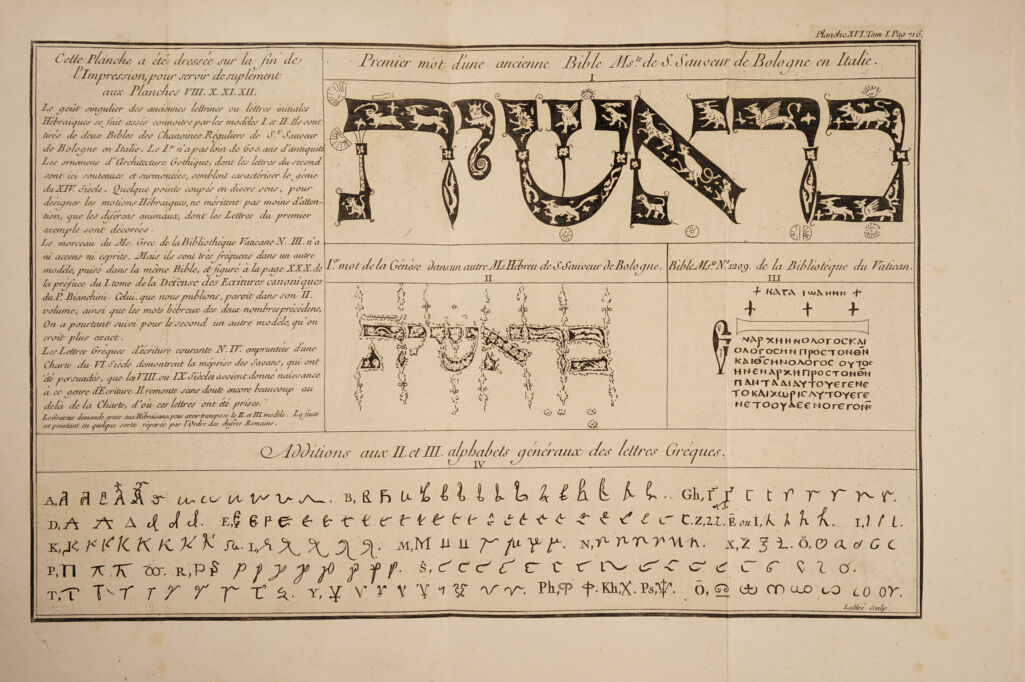 Planche XVI. Tom I. Pag 716.
Cette Planche a été dressée sur la fin de
l'Impression, pour servir de suplément
aux Planches VIII. X. XI. XII.
Le goût singulier des anciennes lettrines ou lettres initiales
Hébraïques se fait assés connoitre par les modèles I. et II. Ils sont
tirés de deux Bibles des Chanoines Réguliers de S.t Sauveur
de Bologne en Italie. Le I.er n'a pas loin de 600. ans d'antiquité.
Les ornemens d'Architecture Gothique, dont les lettres du second
sont ici soutenues et surmontées, semblent caractériser le génie
du XIV. Siécle. Quelque points coupés en divers sens, pour
désigner les motions Hébraïques, ne méritent pas moins d'atten-
tion, que les diférens animaux, dont les Lettres du premier
exemple sont décorées.
Le morceau du Ms. Grec de la Bibliothéque Vaticane N. III. n'a
ni accens ni esprits. Mais ils sont très fréquens dans un autre
modéle, puisé dans la même Bible, et figuré à la page XXX. de
la préface du I. tome de la Défense des Ecritures canoniques
du P. Bianchini. Celui, que nous publions, paroit dans son II.
volume; ainsi que les mots hébreux des deux nombres précédens,
On a pourtant suivi pour le second un autre modéle, qu'on
croit plus exact.
Les Lettres Gréques d'écriture courante N. IV. empruntées d'une
Charte du VI. Siécle démontrent la méprise des Savans, qui ont
été persuadés, que les VIII. ou IX. Siécles avoient donné naissance
à ce genre d'Ecriture. Il remonte sans doute encore beaucoup au
delà de la Charte, d'où ces lettres ont été prises.
Le Graveur demande grace aux Hébraïsans pour avoir transposé le II. et III. modéle. La faute
est pourtant en quelque sorte réparée par l'Ordre des chifres Romains.
Premier mot d'une ancienne Bible Ms.te de S. Sauveur de Bologne en Italie.
I
בראשית
I.er mot de la Génèse dans un autre Ms. Hébreu de S. Sauveur de Bologne.
II
בראשית
Bible Ms.te N.o 1209. de la Bibliotéque du Vatican.
III
ΚΑΤΑ ΙΩΑΝΗΝ
ΕΝΑΡΧΗΗΝΟΛΟΓΟΣΚΑΙ
ΟΛΟΓΟΣΗΝΠΡΟΣΤΟΝΘΝ
ΚΑΙΘΣΗΝΟΛΟΓΟΣ ΟΥΤΟΣ
ΗΝΕΝΑΡΧΗΠΡΟΣΤΟΝΘΝ
ΠΑΝΤΑΔΙΑΥΤΟΥΕΓΕΝΕ
ΤΟΚΑΙΧΩΡΙΣΑΥΤΟΥΕΓΕ
ΝΕΤΟΟΥΔΕΕΝΟΓΕΓΟΝΕ
Additions aux II. et III. alphabets généraux des lettres Gréques.
IV
A, B, Gh,
D, E, Z, Ē ou I, I,
K, L, M, N, X, Ŏ,
P, R, S,
T, Y, Ph, Kh, Ps, Ō,
Lattré Sculp